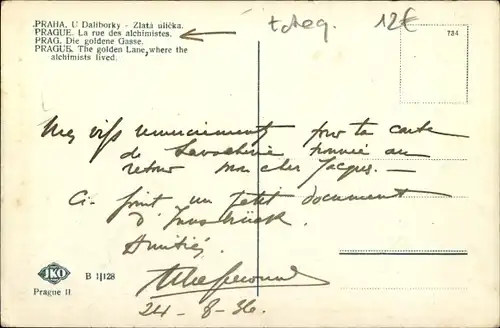 PRAHA. U Daliborky - Zlatá ulička.
PRAGUE. La rue des alchimistes.
PRAG. Die goldene Gasse.
PRAGUE. The golden Lane, where the
alchimists lived.
tcheq.
12€
784
Mes vifs remerciements pour ta carte
de trouvée au
retour mon cher Jacques. —
Ci-joint un petit document
d'Innsbrück.
Amitiés.
24-8-36
JKO
B 1|128
Prague II